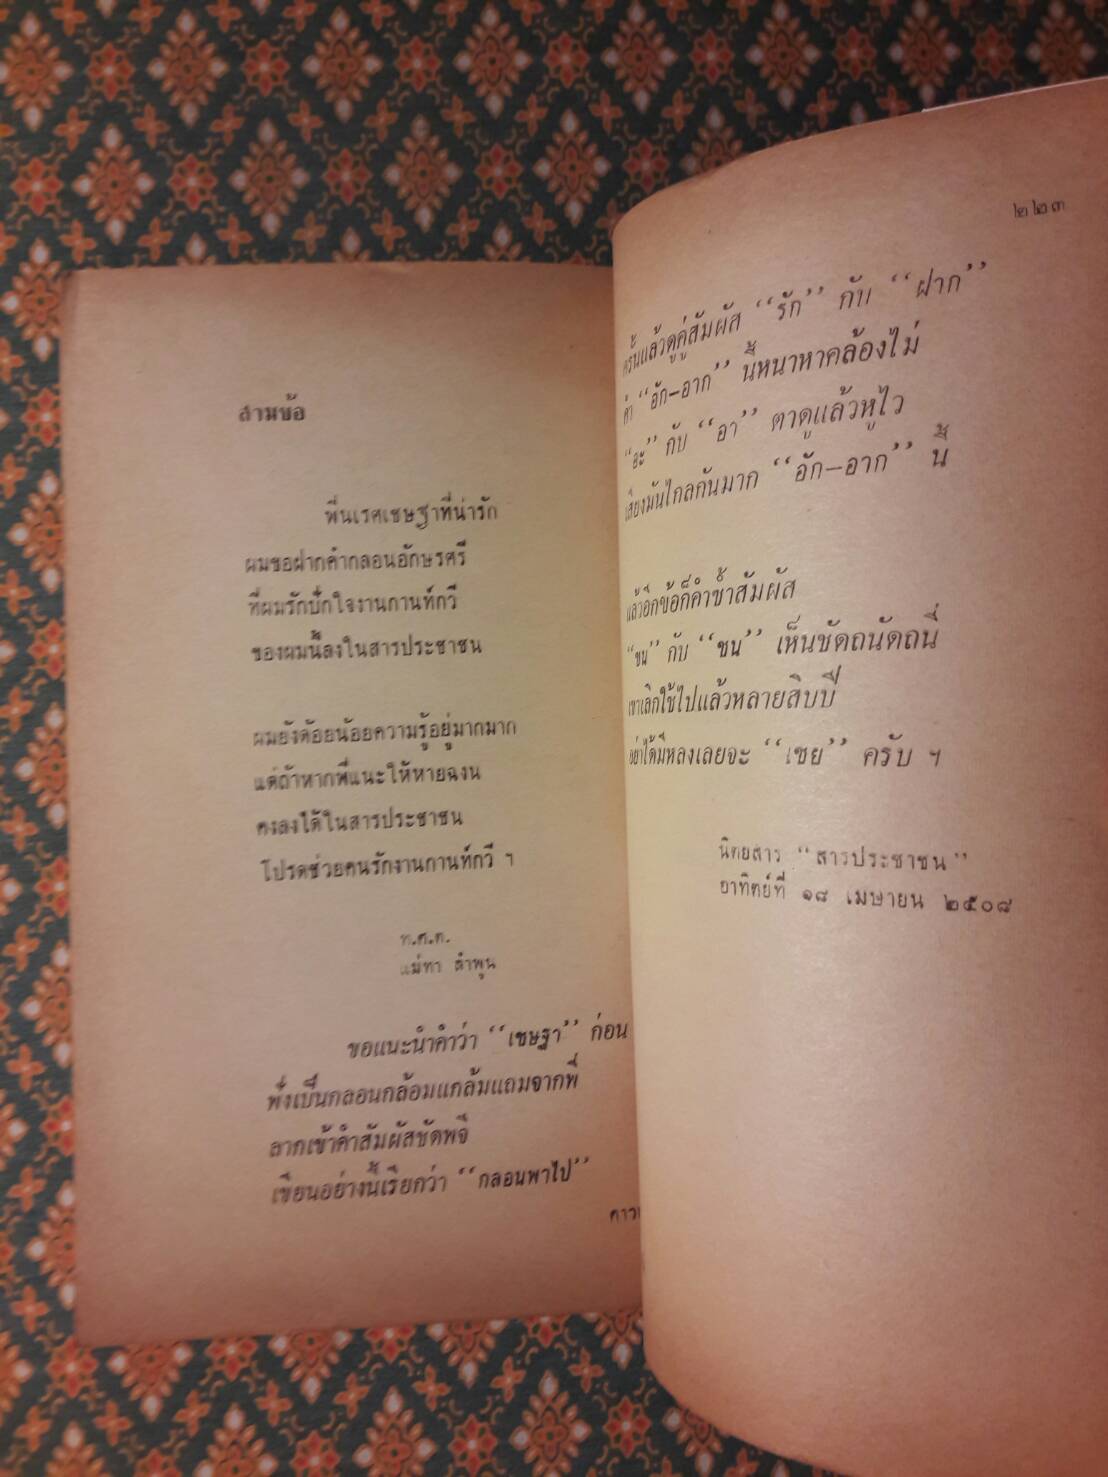 สามข้อ
พี่นเรศเชษฐาที่น่ารัก
ผมขอฝากคำกลอนอักษรศรี
ที่ผมรักปักใจงานกานท์กวี
ของผมนี้ลงในสารประชาชน
ผมยังด้อยน้อยความรู้อยู่มากมาก
แต่ถ้าหากพี่แนะให้หายฉงน
คงลงได้ในสารประชาชน
โปรดช่วยคนรักงานกานท์กวี ฯ
ท.ศ.ต.
แม่ทา ลำพูน
ขอแนะนำคำว่า “เชษฐา” ก่อน
ฟังเป็นกลอนกล้อมแกล้มแถมจากพี่
ลากเข้าคำสัมผัสชัดพจี
เขียนอย่างนี้เรียกว่า “กลอนพาไป”
๒๒๓
ครั้นแล้วดูคู่สัมผัส “รัก” กับ “ฝาก”
คำ “อัก–อาก” นี้หนาหาคล้องไม่
“อะ” กับ “อา” ตาดูแล้วหูไว
เสียงมันไกลกันมาก “อัก–อาก” นี้
แล้วอีกข้อก็คำซ้ำสัมผัส
“ชน” กับ “ชน” เห็นชัดถนัดถนี่
เขาเลิกใช้ไปแล้วหลายสิบปี
อย่าได้มีหลงเลยจะ “เชย” ครับ ฯ
นิตยสาร “สารประชาชน”
อาทิตย์ที่ ๑๘ เมษายน ๒๕๐๘